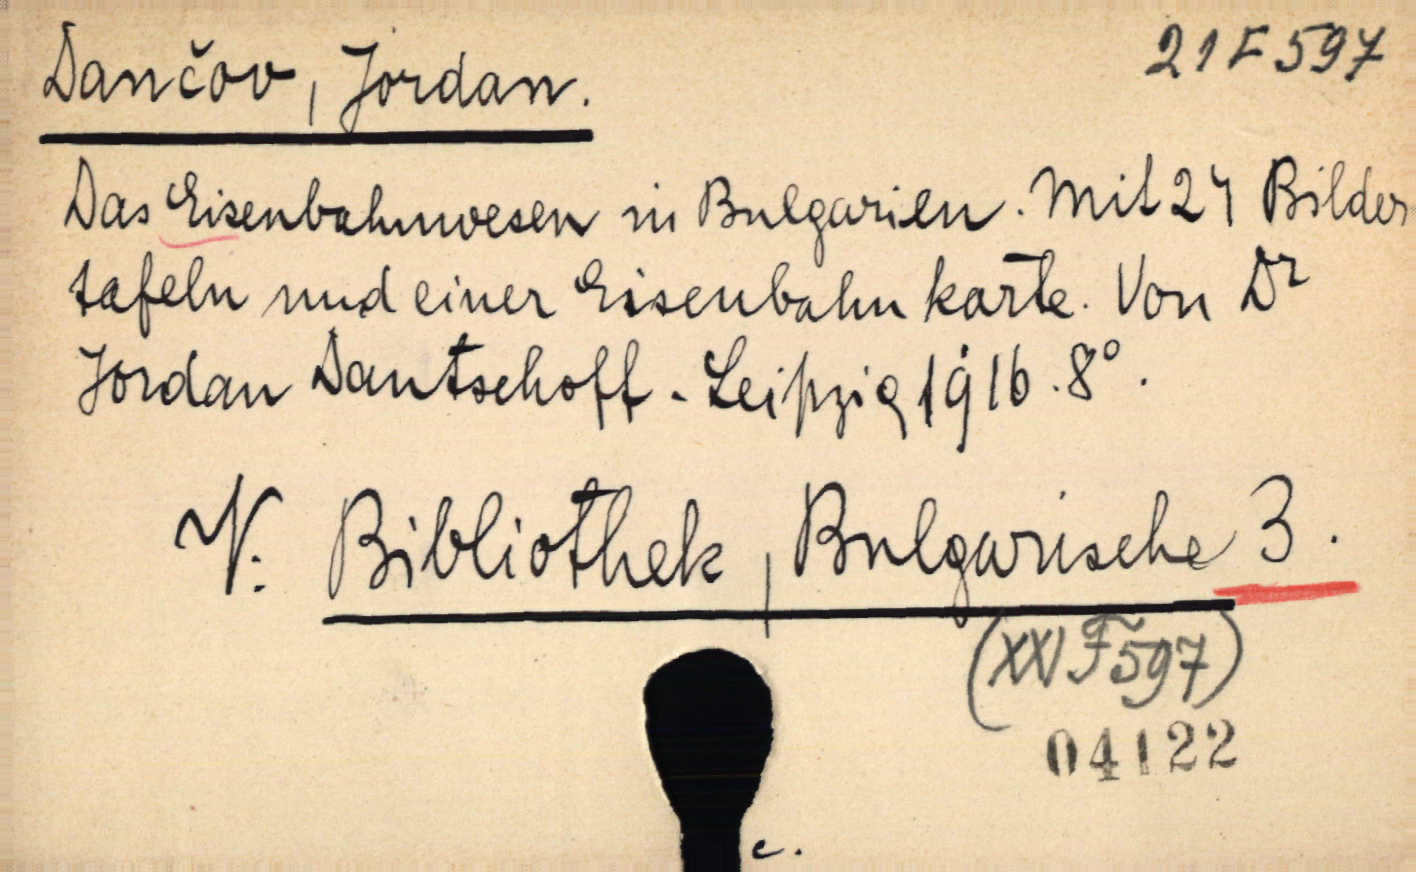 21 F 597
Dančov, Jordan.
Das Eisenbahnwesen in Bulgarien. Mit 24 Bilder
tafeln und einer Eisenbahnkarte. Von Dr
Jordan Dantschoff. Leipzig 1916. 8°.
V. Bibliothek, Bulgarische 3.
(XXI F 597)
04122
c.